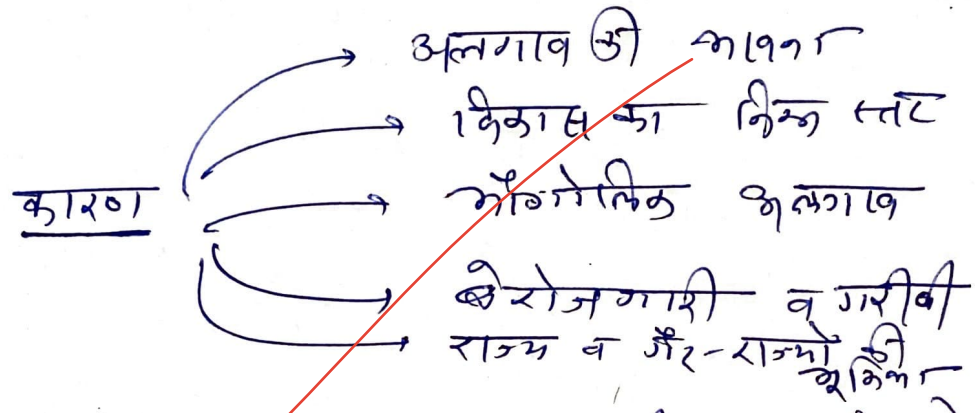 अलगाव की भावना
विकास का निम्न स्तर
कारण
भौगोलिक अलगाव
बेरोजगारी व गरीबी
राज्य व गैर-राज्यों की भूमिका